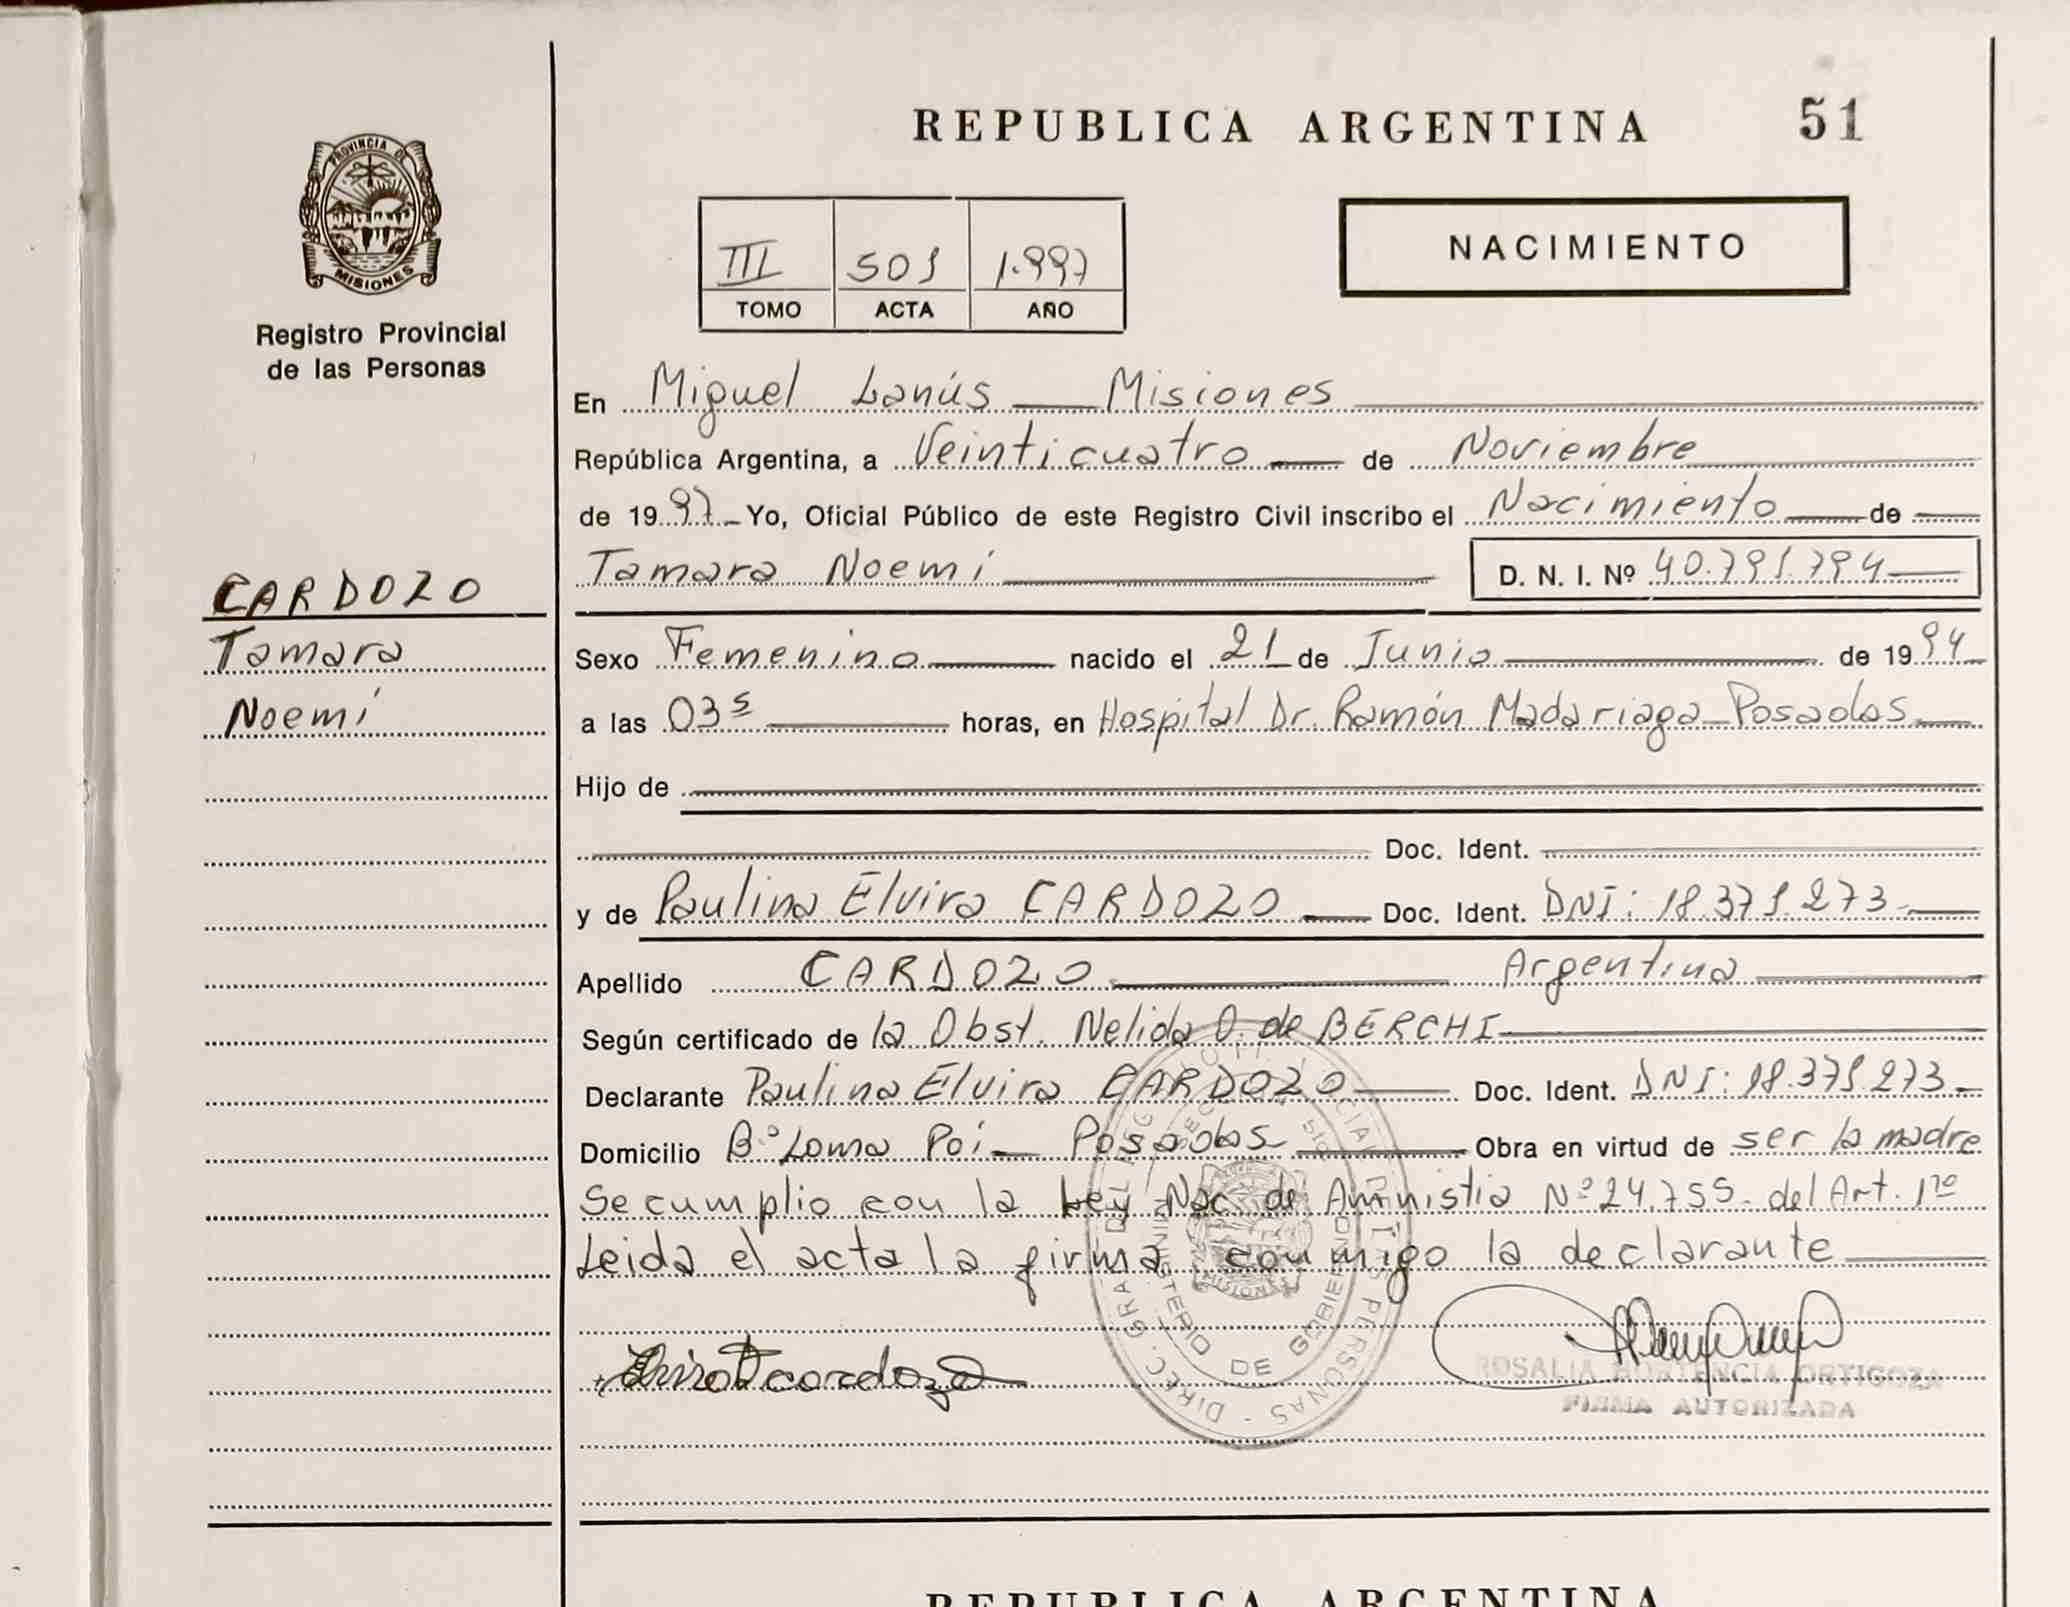 REPUBLICA ARGENTINA 51
PROVINCIA DE
MISIONES
Registro Provincial
de las Personas
III 501 1.997
TOMO ACTA AÑO
NACIMIENTO
En Miguel Lanús Misiones
República Argentina, a Veinticuatro de Noviembre
de 1997 Yo, Oficial Público de este Registro Civil inscribo el Nacimiento de
Tamara Noemí D. N. I. Nº 40.791.794
CARDOZO
Tamara
Noemí
Sexo Femenino nacido el 21 de Junio de 1994
a las 03⁵ horas, en Hospital Dr. Ramón Madariaga Posadas
Hijo de
Doc. Ident.
y de Paulina Elvira CARDOZO Doc. Ident. DNI: 18.371.273
Apellido CARDOZO Argentina
Según certificado de la Obst. Nelida O. de BERCHI
Declarante Paulina Elvira CARDOZO Doc. Ident. DNI: 18.371.273
Domicilio Bº Loma Poí Posadas Obra en virtud de ser la madre
Se cumplio con la Ley Nac. de Amnistia Nº 24.755. del Art. 1ro
Leida el acta la firma conmigo la declarante
cardozo
ROSALIA HORTENCIA ORTIGOZA
FIRMA AUTORIZADA
MINISTERIO DE GOBIERNO
REPUBLICA ARGENTINA